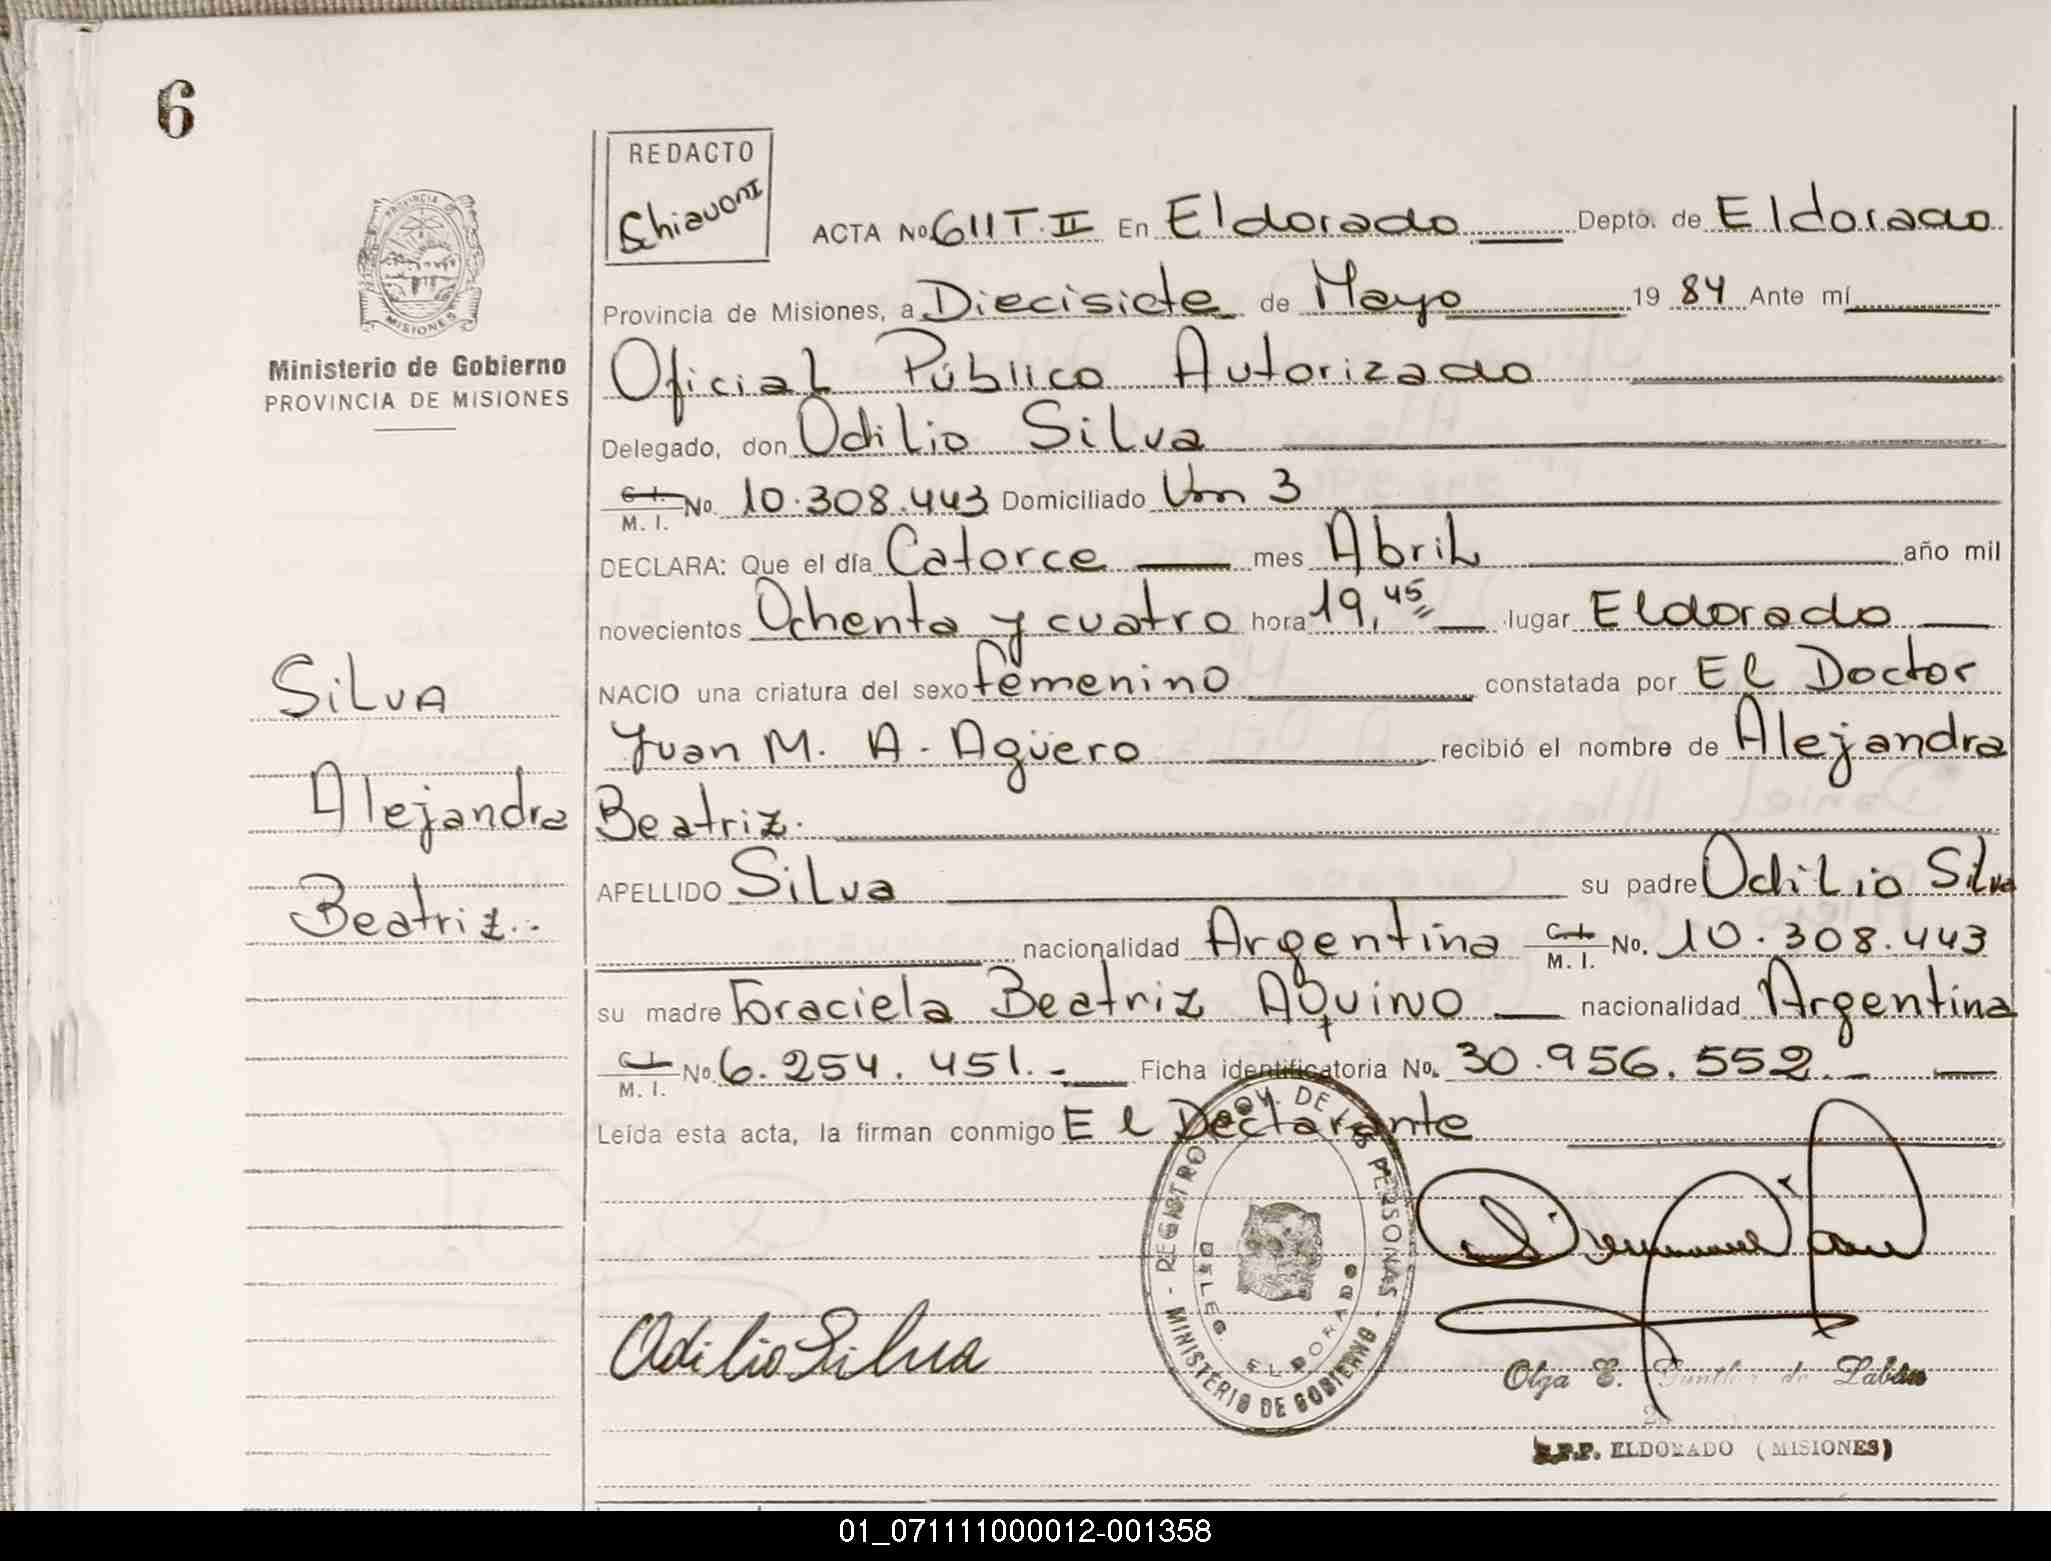 6
REDACTO
Schiavoni
PROVINCIA DE
MISIONES
Ministerio de Gobierno
PROVINCIA DE MISIONES
ACTA No. 611 T. II En Eldorado Depto. de Eldorado
Provincia de Misiones, a Diecisiete de Mayo 19 84 Ante mí
Oficial Público Autorizado
Delegado, don Odilio Silva
C. I.
M. I. No. 10.308.443 Domiciliado Km 3
DECLARA: Que el día Catorce mes Abril año mil
novecientos Ochenta y cuatro hora 19,45 lugar Eldorado
NACIO una criatura del sexo femenino constatada por El Doctor
Juan M. A. Agüero recibió el nombre de Alejandra
Beatriz.
APELLIDO Silva su padre Odilio Silva
nacionalidad Argentina C. I. M. I. No. 10.308.443
su madre Graciela Beatriz Aquino nacionalidad Argentina
C. I.
M. I. No. 6.254.451.- Ficha identificatoria No. 30.956.552.-
Leída esta acta, la firman conmigo El Declarante
Silva
Alejandra
Beatriz.-
REGISTRO PROV. DE LAS PERSONAS
- MINISTERIO DE GOBIERNO -
DELEG.
ELDORADO
Odilio Silva
Olga E. de Laban
R.P.P. ELDORADO (MISIONES)
01_071111000012-001358